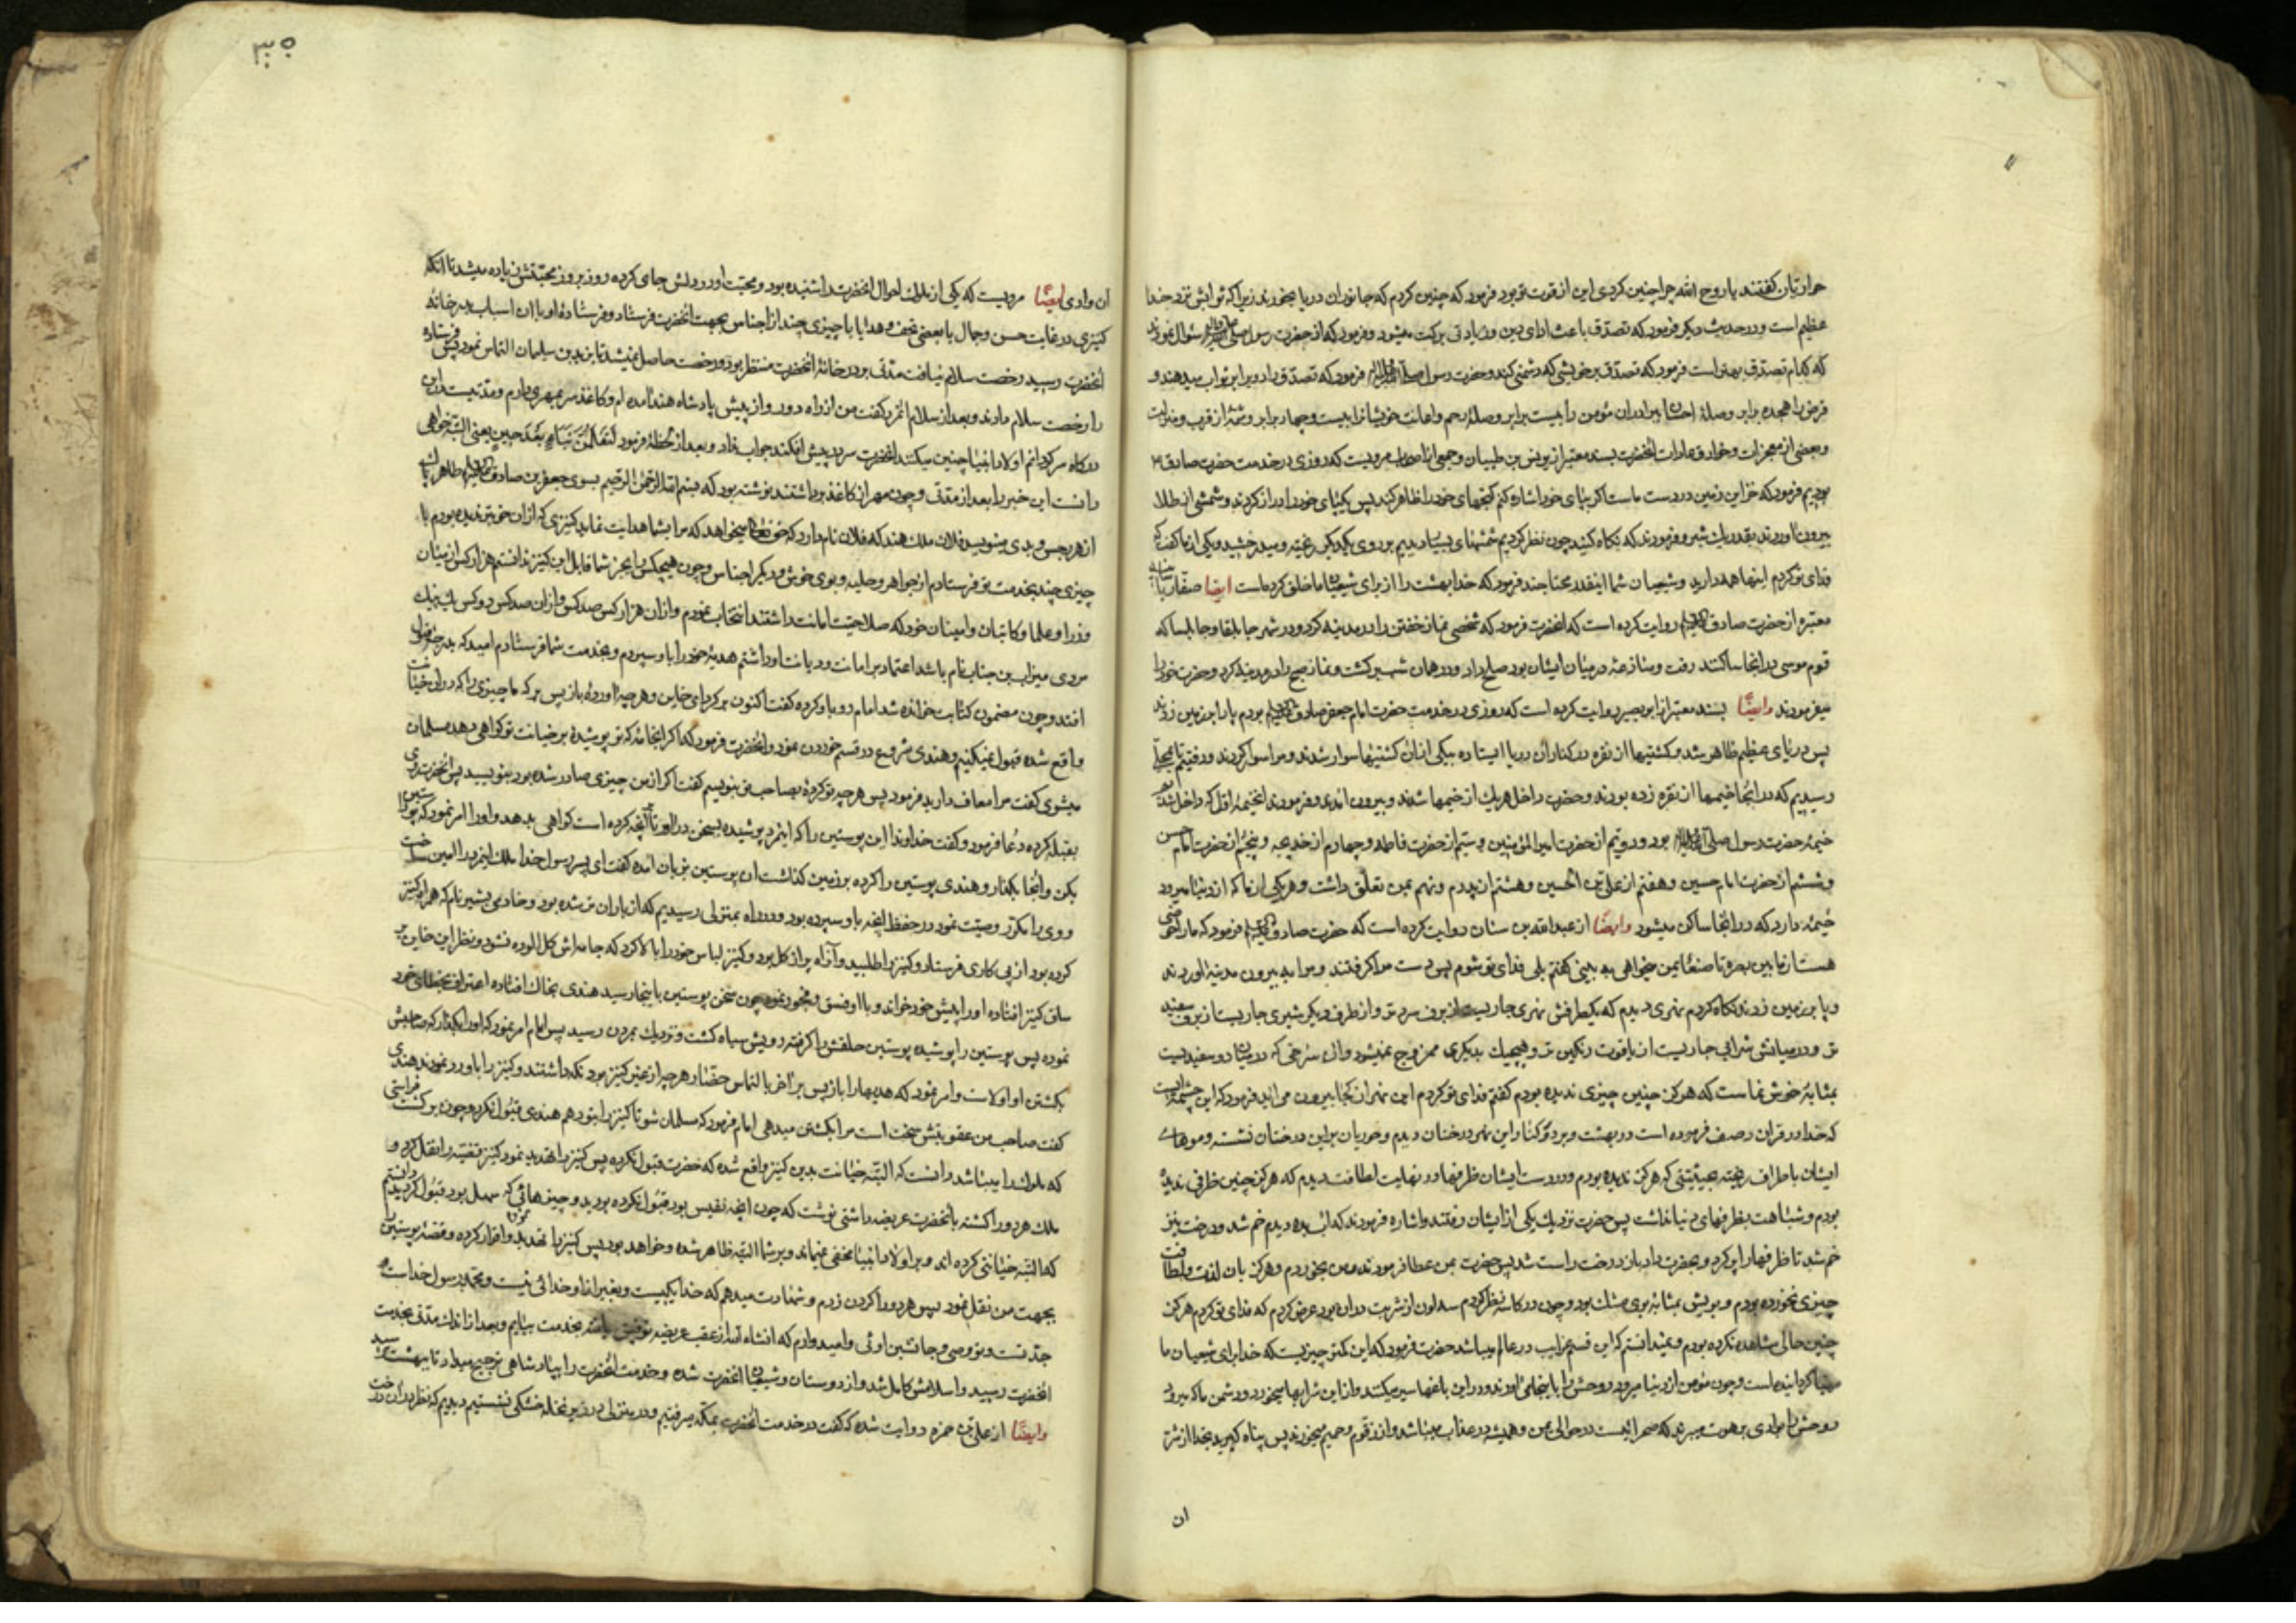 حواریان گفتند یا روح الله چرا چنین کردی این از قوت تو بود فرمود که چنین کردم که جانوران دریا بخورند زیرا که ثوابش نزد خدا
عظیم است و در حدیث دیگر فرمود که تصدق باعث ادای دین و زیادتی برکت میشود و فرمود که از حضرت رسول سؤال نمودند
که کدام تصدق بهتر است فرمود که تصدق بر خویشی که دشمنی کند و حضرت رسول فرمود که تصدق را ده برابر ثواب میدهند و
قرض را هجده برابر و صلهٔ احسان برادران مؤمن را بیست برابر و صلهٔ رحم و اعانت خویشانرا بیست و چهار برابر
و بعضی از معجزات و خوارق عادات انحضرت بسند معتبر از یونس بن ظبیان و جمعی از اصحاب مرویست که روزی در خدمت حضرت صادق
بودیم فرمود که خزاین زمین در دست ماست اگر بپای خود اشاره کنم گنجهای خود را ظاهر کند پس یکپای خود را دراز کردند و شمشی از طلا
بیرون آوردند بقدر یک شبر و فرمودند که نگاه کنید چون نظر کردیم شمشهای بسیار دیدیم بر روی یکدیگر ریخته و میدرخشید و یکی از ما گفت که
فدای تو گردم اینها همه دارید و شیعیان شما اینقدر محتاجند فرمود که خدا بهشت را از برای شیعیان ما خلق کرده است ایضا صفار
معتبره از حضرت صادق روایت کرده است که انحضرت فرمود که شخصی نماز خفتن را در مدینه کرد و در شهر جابلقا و جابلسا که
قوم موسی در انجا ساکنند رفت و منازعه در میان ایشان بود صلح داد و در همان شب برگشت و نماز صبح را در مدینه کرد و حضرت خود را
میفرمودند وایضًا بسند معتبر از ابو بصیر روایت کرده است که روزی در خدمت حضرت امام جعفر صادق بودم پا را بر زمین زدند
پس دریای عظیم ظاهر شد و کشتیها از نقره در کنار آن دریا ایستاده بیکی از آن کشتیها سوار شدند و مرا سوار کردند و رفتیم تا بمحلی
رسیدیم که در انجا خیمها از نقره زده بودند و حضرت داخل هر یک از خیمها شدند و بیرون آمدند و فرمودند انخیمهٔ اول که داخل شد
خیمهٔ حضرت رسول بود و دویم از حضرت امیر المؤمنین و سیم از حضرت فاطمه و چهارم از خدیجه و پنجم از حضرت امام حسن
و ششم از حضرت امام حسین و هفتم از علی بن الحسین و هشتم از پدرم و نهم بمن تعلق داشت و هر یکی از ما که از دنیا میرود
خیمهٔ دارد که در انجا ساکن میشود وایضًا از عبدالله بن سنان روایت کرده است که حضرت صادق فرمود که ما را حوضی
هست از ما بین بصره تا صنعای یمن میخواهی به بینی گفتم بلی فدای تو شوم پس دست مرا گرفتند و مرا به بیرون مدینه آوردند
و پا بر زمین زدند نگاه کردم نهری دیدم که یکطرفش نهری جاریست از برف سردتر و از طرف دیگر شیری جاریست از برف سفید
تر و در میانش شرابی جاریست از یاقوت رنگین تر و هیچیک بدیگری ممزوج نمیشود و ان سرخی که در میان دو سفیدیست
بمثابهٔ خوش نماست که هرگز چنین چیزی ندیده بودم گفتم فدای تو گردم این نهر از کجا بیرون می آید فرمود که این چشمه ایست
که خدا در قران وصف فرموده است در بهشت و بر دو کنار این نهر درختان دیدم و حوریان بر این درختان نشسته و موهای
ایشان باطراف ریخته بحیثیتی که هرگز ندیده بودم و در دست ایشان ظرفها در نهایت لطافت دیدم که هرگز چنین ظرفی ندیده
بودم و شباهت بظرفهای دنیا نداشت پس حضرت نزدیک یکی از ایشان رفتند و اشاره فرمودند که آب بده دیدم خم شد و درخت نیز
خم شد تا ظرفها را پر کرد و بحضرت داد باز درخت راست شد پس حضرت بمن عطا فرمودند و من بخوردم و هرگز بان لذت و لطافت
چیزی نخورده بودم و بویش بمثابهٔ بوی مشک بود و چون در کاسه نظر کردم سه لون از شربت در ان بود عرض کردم که فدای تو گردم هرگز
چنین حالی مشاهده نکرده بودم و نمیدانستم که این قسم عجایب در عالم میباشد حضرت فرمود که این کمتر چیزیست که خدا برای شیعیان ما
مهیا گردانیده است و چون مؤمن از دنیا میرود روحش را باینجا می آورند و در این باغها سیر میکند و از این شرابها میخورد و دشمن ما که میرود
روحش را بوادی برهوت میبرند که صحرائیست در حوالی یمن و همیشه در عذاب میباشد و از زقوم و حمیم میخورند پس پناه گیرید بخدا از شر
ان
۳۰۵
ان وادی ایضًا مرویست که یکی از ملوک احوال انحضرت را شنیده بود و محبت او در دلش جای کرده روز بروز محبتش زیاده میشد تا انکه
کنیزی در غایت حسن و جمال با بعضی تحف و هدایا با چیزی چند از اجناس بجهت انحضرت فرستاد و فرستادهٔ او با ان اسباب بدر خانهٔ
انحضرت رسید رخصت سلام نیافت مدتی بر در خانهٔ انحضرت منتظر بود و رخصت حاصل نمیشد تا یزید بن سلیمان التماس نمود پس فرستاده
را رخصت سلام دادند و بعد از سلام انمرد گفت من از راه دور و از پیش پادشاه هند آمده ام و کاغذ سر بمهری دارم و مدتیست در این
درگاه سرگردانم اولاد انبیا چنین میکنند انحضرت سر در پیش افکند جواب نداد و بعد از لحظهٔ فرمود لتعلمن نباه بعد حین یعنی البته خواهی
دانست این خبر را بعد از مدتی و چون مهر از کاغذ برداشتند نوشته بود که بسم الله الرحمن الرحیم بسوی جعفر بن صادق طاهر پاک
از هر رجس و بدی مینویسد فلان ملک هند که فلان نام دارد که حق تعالی میخواهد که مرا بشما هدایت نماید کنیزی که از ان خوبتر ندیده بودم با
چیزی چند بخدمت تو فرستادم از جواهر و حلیه و بوی خوش و دیگر اجناس و چون هیچکس را بجز شما قابل این کنیز ندانستم هزار کس از میان
وزرا و علما و کاتبان و امینان خود که صلاحیت امانت داشتند انتخاب نمودم و از ان هزار کس صد کس و از ان صد کس ده کس
مردی میزاب بن جناب نام باشد اعتماد بر امانت و دیانت او داشتم هدیهٔ خود را باو سپردم و بخدمت شما فرستادم امید که بدرجهٔ قبول
افتد و چون مضمون کتابت خوانده شد امام رو باو کرده گفت اکنون برگرد ای خاین و هر چه آوردهٔ باز پس بر که ما چیزی را که در ان خیانت
واقع شده قبول نمیکنیم و هندی شروع در قسم خوردن نمود و انحضرت فرمود که اگر انجامهٔ که تو پوشیدهٔ بر خیانت تو گواهی دهد مسلمان
میشوی گفت مرا معاف دارید فرمود پس هر چه تو کردهٔ بصاحب تو بنویسیم گفت اگر از من چیزی صادر شده بود بنویسید پس انحضرت روی
بقبله کرده دعا فرمود و گفت خداوندا این پوستین را که اینمرد پوشیده بسخن در آور تا آنچه کرده است گواهی بدهد و او را امر نمود که پوستین را
بکن و انجا بگذار و هندی پوستین را کرده بر زمین گذاشت ان پوستین بزبان آمده گفت ای پسر رسول خدا ملک اینمرد را امین ساخت
و وی را مکرر وصیت نمود در حفظ آنچه باو سپرده بود و در راه بمنزلی رسیدیم که از باران تر شده بود و خادمی بشیر نام که همراه کنیز
کرده بود از پی کاری فرستاد و کنیز را طلبید و آن راه پر از گل بود و کنیز لباس خود را بالا کرد که جامه اش گل الوده نشود و نظر این خاین بر
ساق کنیز افتاده او را پیش خود خواند و با او فسق و فجور نمود چون سخن پوستین باینجا رسید هندی بخاک افتاده اعتراف بخطای خود
نموده پس پوستین را پوشیده پوستین حلقش را گرفته رویش سیاه گشت و نزدیک بمردن رسید پس امام امر نمود که او را بگذار که صاحبش
بکشتن او اولاست و امر نمود که هدیها را باز پس بر آخر بالتماس حضار هر چه از غیر کنیز بود نگه داشتند و کنیز را باو رد نمودند هندی
گفت صاحب من عقوبتش سخت است مرا بکشتن میدهی امام فرمود که مسلمان شو تا کنیز را بتو دهم هندی قبول نکرد و چون برگشت
که ملوک را میباشد دانست که البته خیانت بدین کنیز واقع شده که حضرت قبول نکرده پس کنیز را تهدید نمود کنیز قضیه را نقل کرد و
ملک هر دو را کشته بانحضرت عریضه داشتی نوشت که چون آنچه نفیس بود قبول نکرده بودید و چیزهائی که سهل بود قبول کردید دانستم
که البته خیانتی کرده اند و بر اولاد انبیا مخفی نمیماند و بر شما البته ظاهر شده و خواهد بود پس کنیز را تهدید نموده اقرار کرده و قصهٔ پوستین را
بجهت من نقل نمود پس هر دو را گردن زدم و شهادت میدهم که خدا یکیست و بغیر از او خدائی نیست و محمد رسول خداست
جد تست و تو وصی و جانشین اوئی و امیدوارم که انشاء الله از عقب عریضه توفیق یافته بخدمت بیایم و بعد از اندک مدتی بخدمت
انحضرت رسید و اسلامش کامل شد و از دوستان و شیعیان انحضرت شده و خدمت انحضرت را بپادشاهی ترجیح میداد تا ببهشت رسید
وایضًا از علی بن حمزه روایت شده که گفت در خدمت انحضرت بمکه میرفتیم و در منزلی در زیر نخلهٔ خشکی نشستیم دیدیم که نظر بدان درخت